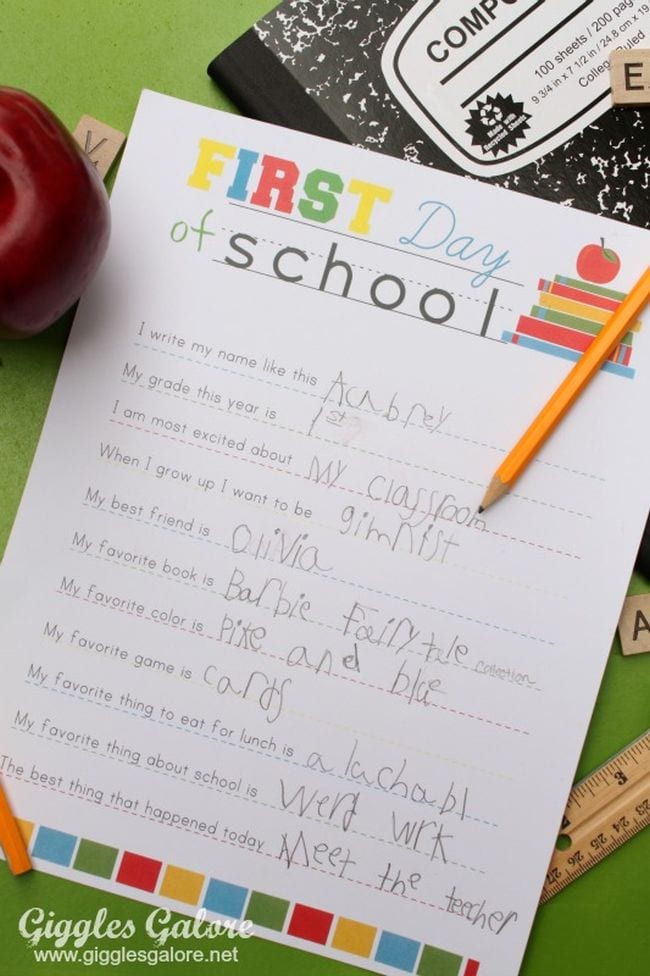 COMPO
100 sheets / 200 pag
9 3/4 in x 7 1/2 in / 24.8 cm x 19
College Ruled
Made with
Recycled Sheets
E
K
FIRST Day
of school
I write my name like this Aubrey
My grade this year is 1st
I am most excited about My classroom
When I grow up I want to be gimnist
My best friend is Olivia
My favorite book is Barbie Fairy tale collection
My favorite color is Pike and blue
My favorite game is cards
My favorite thing to eat for lunch is a luchabl
My favorite thing about school is Werd wrk
The best thing that happened today Meet the teacher
A
Giggles Galore
www.gigglesgalore.net